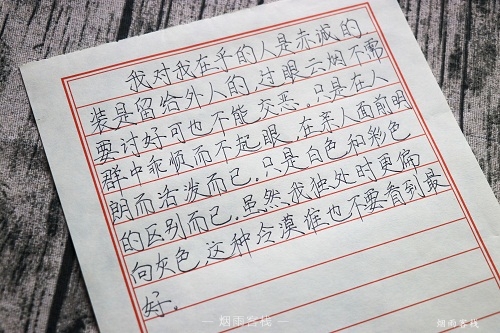 我对我在乎的人是赤诚的,
装是留给外人的.过眼云烟不需
要讨好可也不能交恶.只是在人
群中乖顺而不起眼.在亲人面前明
朗而活泼而已.只是白色和彩色
的区别而已.虽然我独处时更偏
向灰色.这种冷漠症也不要看到最
好.
— 烟雨客栈 —
烟雨客栈